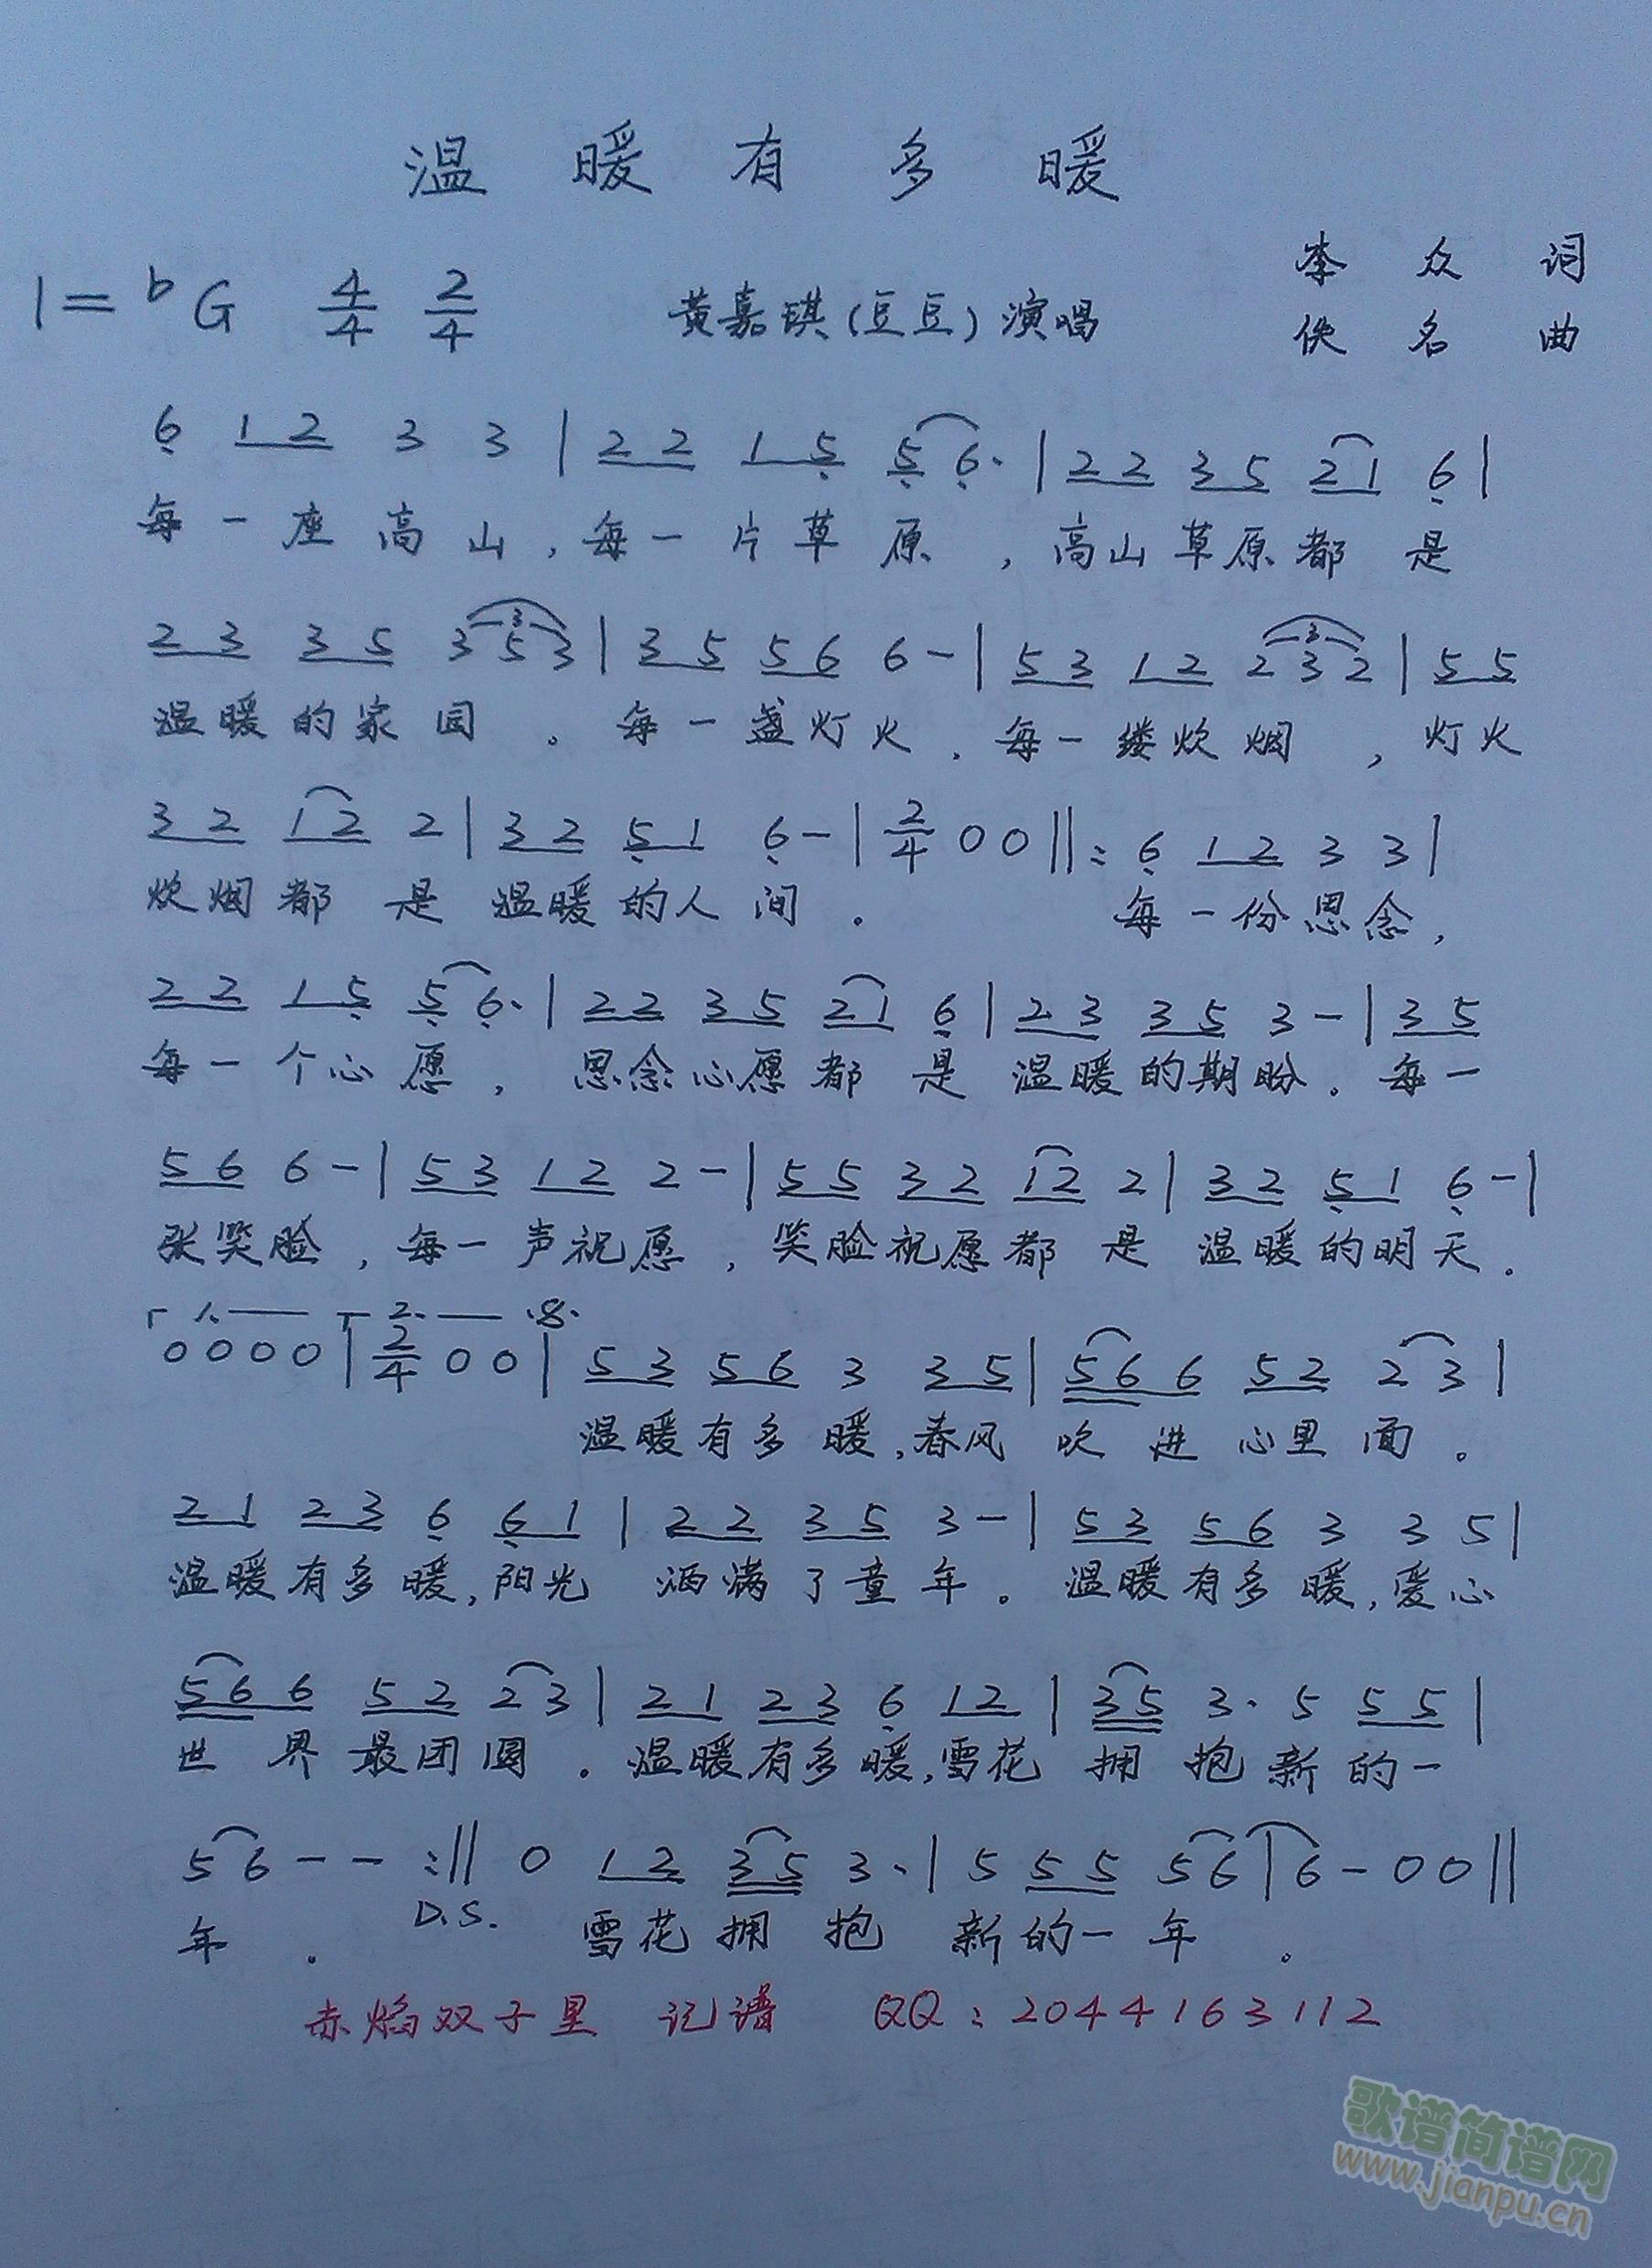 温 暖 有 多 暖
1=♭G 4/4 2/4 黄嘉琪(豆豆)演唱 李 众 词
佚 名 曲
6 1 2 3 3 | 2 2 1 5 5 6· | 2 2 3 5 2 1 6 |
每一座高山,每一片草原,高山草原都是
2 3 3 5 3 5 3 | 3 5 5 6 6 - | 5 3 1 2 2 3 2 | 5 5
温暖的家园。每一盏灯火,每一缕炊烟,灯火
3 2 1 2 2 | 3 2 5 1 6 - | 2/4 0 0 ||: 6 1 2 3 3 |
炊烟都是温暖的人间。每一份思念,
2 2 1 5 5 6· | 2 2 3 5 2 1 6 | 2 3 3 5 3 - | 3 5
每一个心愿,思念心愿都是温暖的期盼。每一
5 6 6 - | 5 3 1 2 2 - | 5 5 3 2 1 2 2 | 3 2 5 1 6 - |
张笑脸,每一声祝愿,笑脸祝愿都是温暖的明天。
1. 2.
0 0 0 0 | 2/4 0 0 | 5 3 5 6 3 3 5 | 5 6 6 5 2 2 3 |
温暖有多暖,春风吹进心里面。
2 1 2 3 6 6 1 | 2 2 3 5 3 - | 5 3 5 6 3 3 5 |
温暖有多暖,阳光洒满了童年。温暖有多暖,爱心
5 6 6 5 2 2 3 | 2 1 2 3 6 1 2 | 3 5 3· 5 5 5 |
世界最团圆。温暖有多暖,雪花拥抱新的一
5 6 - - :|| 0 1 2 3 5 3· | 5 5 5 5 6 | 6 - 0 0 ||
D.S.
年。雪花拥抱新的一年。
赤焰双子星 记谱 QQ:2044163112
歌谱简谱网
www.jianpu.cn